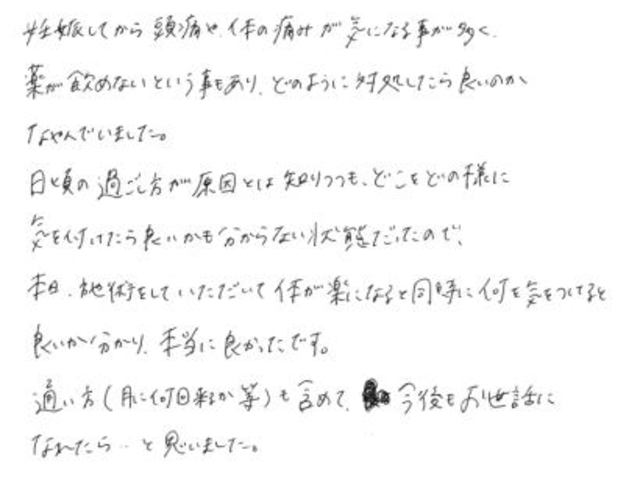 妊娠してから頭痛や、体の痛みが気になる事が多く、
薬が飲めないという事もあり、どのように対処したら良いのか
なやんでいました。
日頃の過ごし方が原因とは知りつつも、どこをどの様に
気を付けたら良いかも分からない状態だったので、
本日、施術をしていただいて体が楽になると同時に何を気をつけると
良いか分かり、本当に良かったです。
通い方(月に何回来るか等)も含めて、今後もお世話に
なれたら…と思いました。